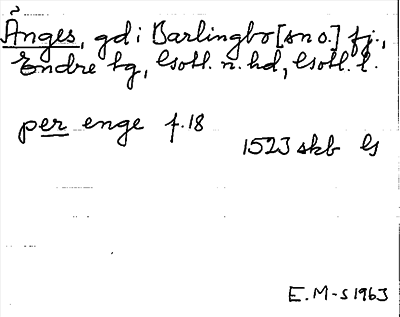 Änges, gd i Barlingbo [sn o.] fj.,
Endre tg, Gotl. n. hd, Gotl. l.
per enge f. 18
1523 skb G
E. M-s 1963